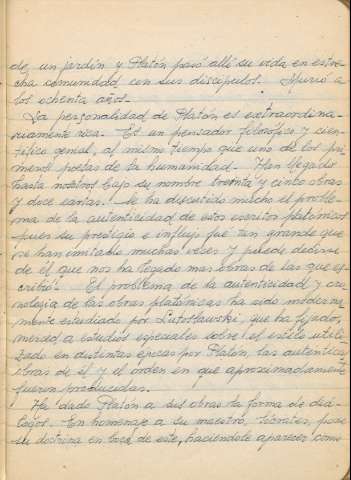 de un jardín y Platón pasó allí su vida en estre-
cha comunidad con sus discípulos. Murió a
los ochenta años.
La personalidad de Platón es extraordina-
riamente rica. Es un pensador filosófico y cien-
tífico genial, al mismo tiempo que uno de los pri-
meros poetas de la humanidad. Han llegado
hasta nosotros bajo su nombre treinta y cinco obras
y doce cartas. Se ha discutido mucho el proble-
ma de la autenticidad de estos escritos platónicos
pues su prestigio e influjo fué tan grande que
se han imitado muchas veces y puede decirse
de él que nos ha llegado mas obras de las que es-
cribió. El problema de la autenticidad y cro-
nología de las obras platónicas ha sido moderna-
mente estudiado por Lutoslawski, que ha fijado,
merced a estudios especiales sobre el estilo utili-
zado en distintas épocas por Platón, las auténticas
obras de él y el orden en que aproximadamente
fueron producidas.
Ha dado Platón a sus obras la forma de diá-
logos. En homenaje a su maestro, Sócrates, pone
su doctrina en boca de este, haciéndole aparecer como